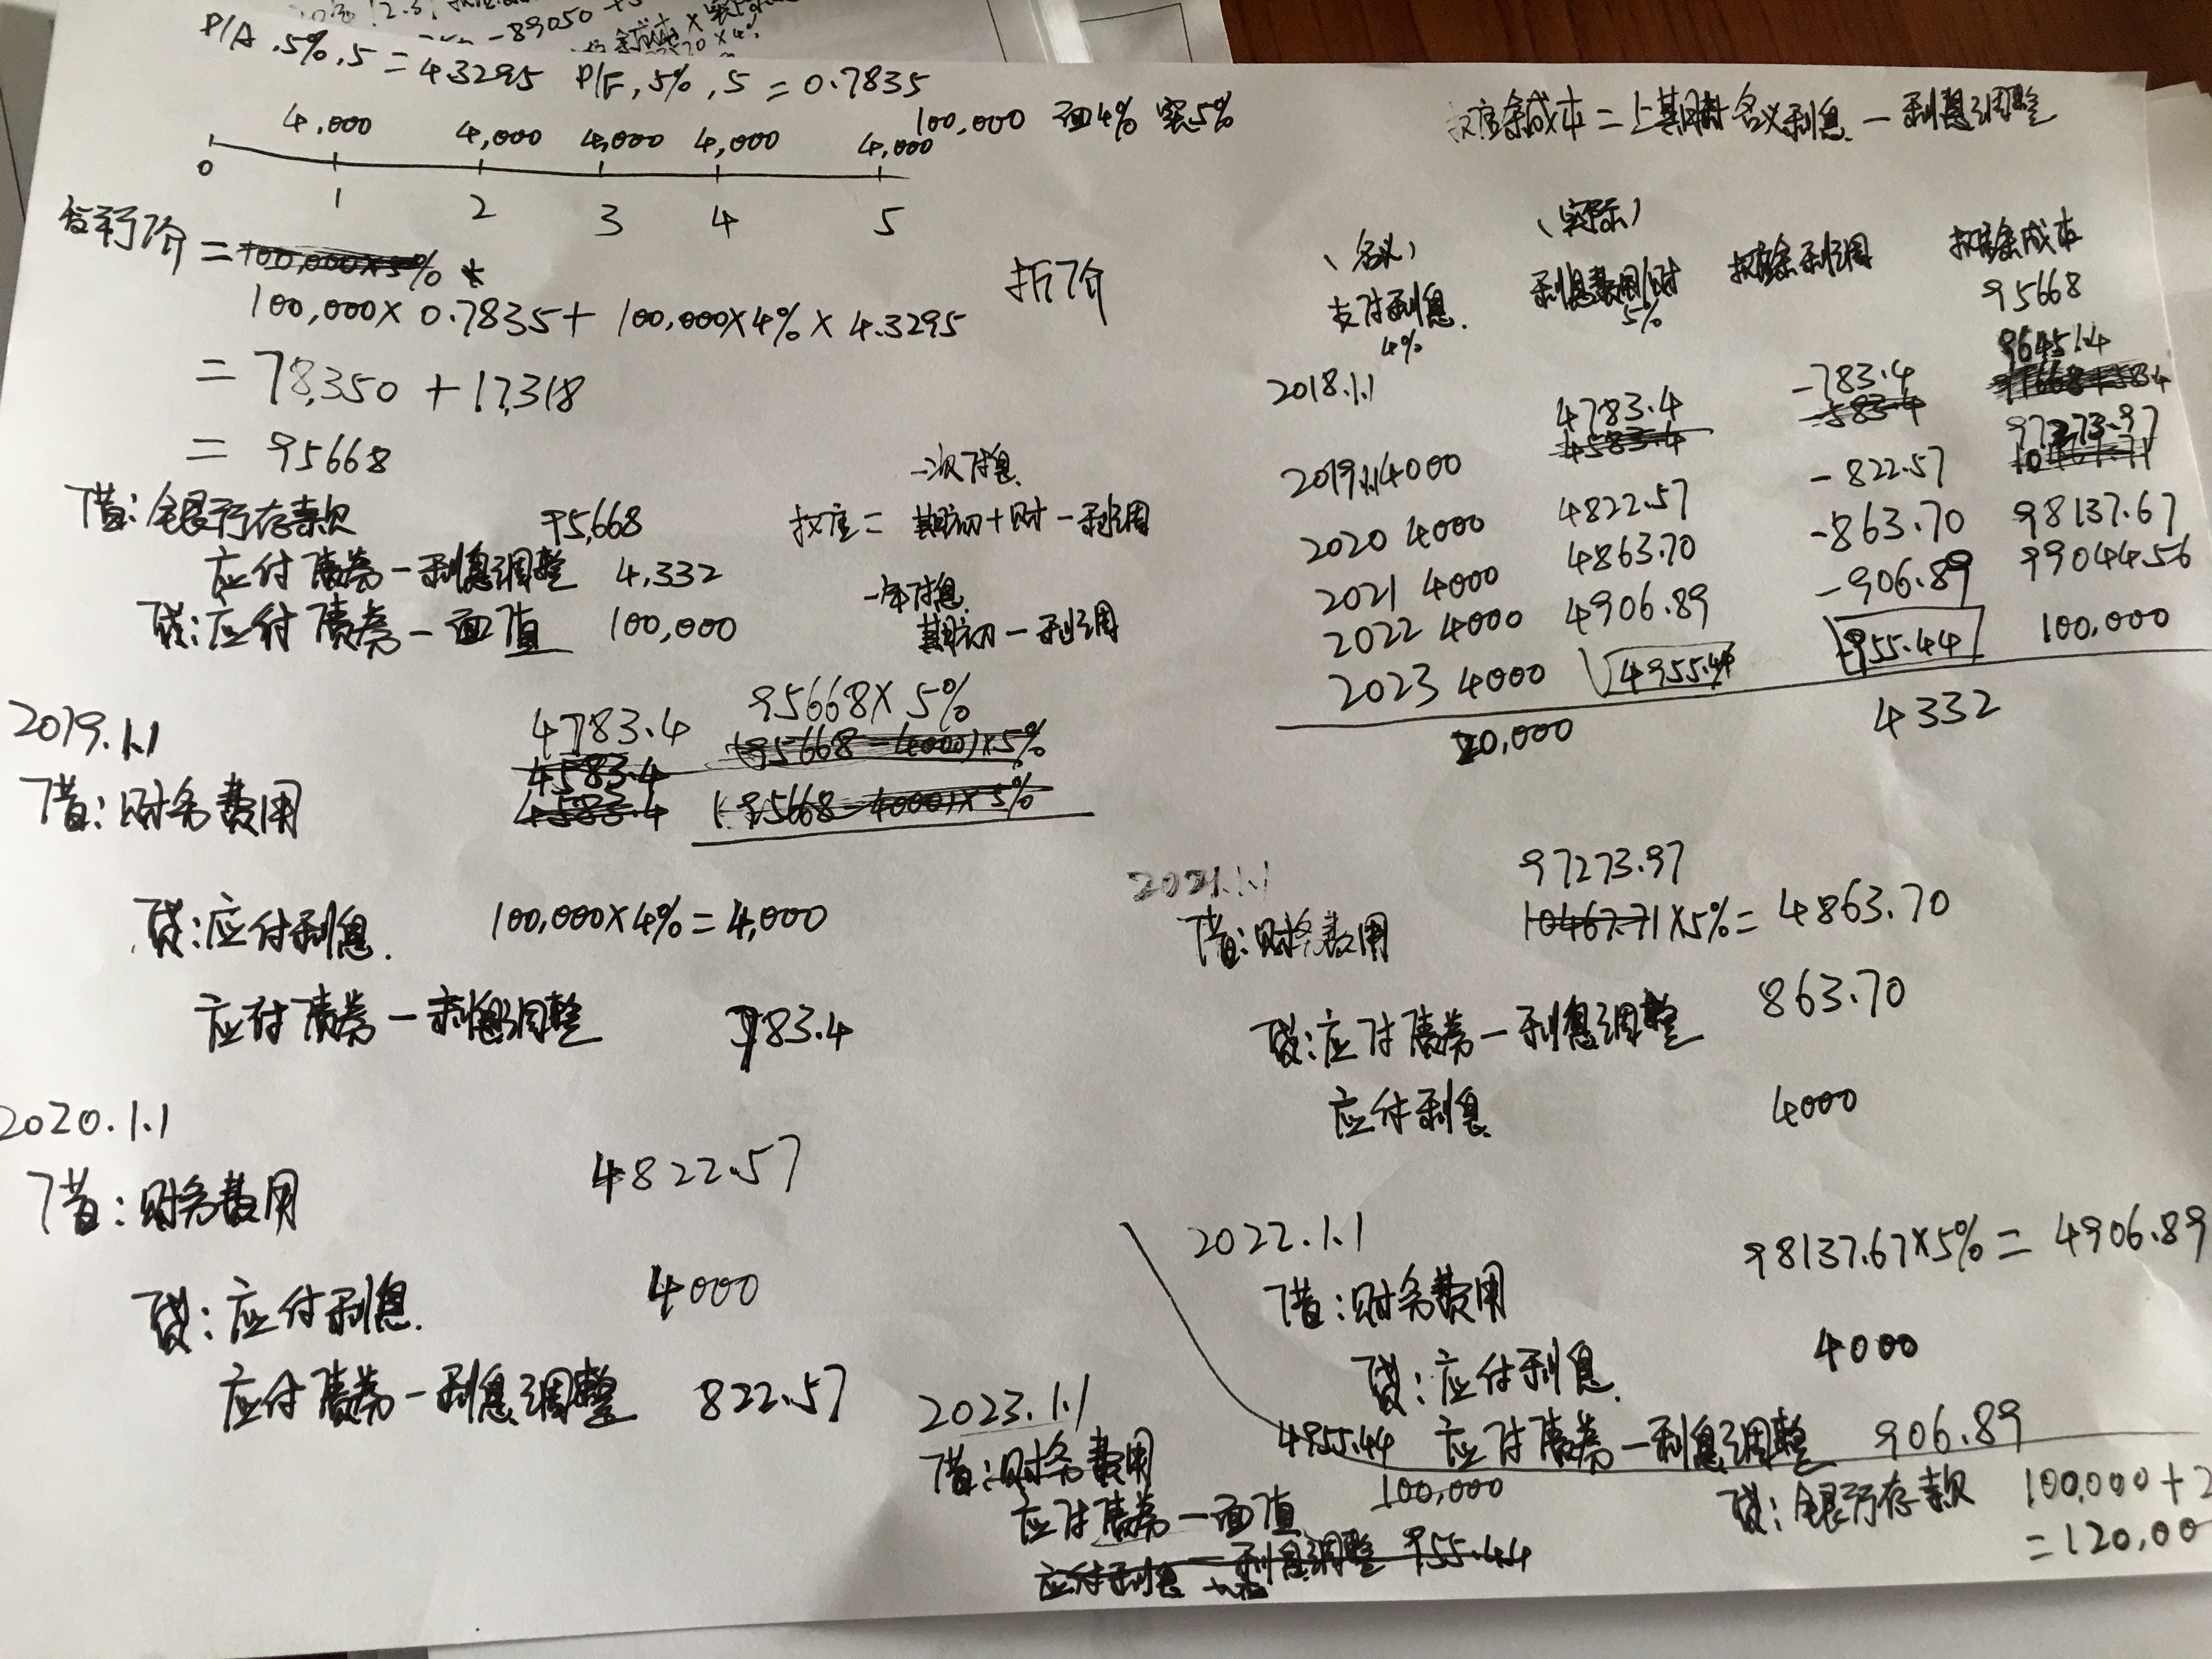 P/A .5%.5 = 4.3295 P/F,5%,5 = 0.7835
4,000 4,000 4,000 4,000 4,000 100,000 面4% 实5%
0 1 2 3 4 5
100,000 × 0.7835 + 100,000×4% × 4.3295 折价
= 78,350 + 17,318
= 95668
借:银行存款 95,668
应付债券—利息调整 4,332
贷:应付债券—面值 100,000
一次付息
摊余 + 应计 - 利调
分付息
2019.1.1
借:财务费用 4783.4 95668×5%
贷:应付利息. 100,000×4% = 4,000
应付债券—利息调整 783.4
2020.1.1
借:财务费用 4822.57
贷:应付利息. 4000
应付债券—利息调整 822.57
摊余成本 = 上期期 - 名义利息 - 利息调整
应付利息 利息费用 摊余利调 摊余成本
4% 5%
2018.1.1 95668
2019.1.1 4000 4783.4 -783.4 96451.4
2020 4000 4822.57 -822.57 97273.97
2021 4000 4863.70 -863.70 98137.67
2022 4000 4906.89 -906.89 99044.56
2023 4000 4955.44 955.44 100,000
20,000 4332
2021.1.1
借:财务费用 97273.97
×5% = 4863.70
贷:应付债券—利息调整 863.70
应付利息 4000
2022.1.1
借:财务费用 98137.67×5% = 4906.89
贷:应付利息. 4000
应付债券—利息调整 906.89
2023.1.1
借:财务费用 4955.44
应付债券—面值 100,000
贷:银行存款 100,000 + 2
= 120,00